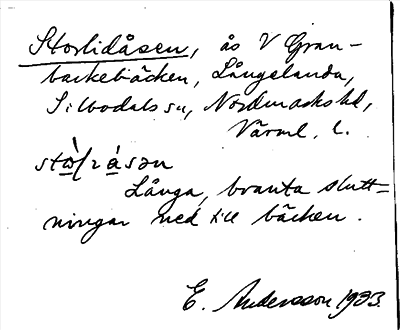 Storlidåsen, ås V Gran-
backebäcken, Långelanda,
Silbodals sn, Nordmarks hd,
Värml. l.
Långa, branta slutt-
ningar ned till bäcken.
E. Andersson 1933.